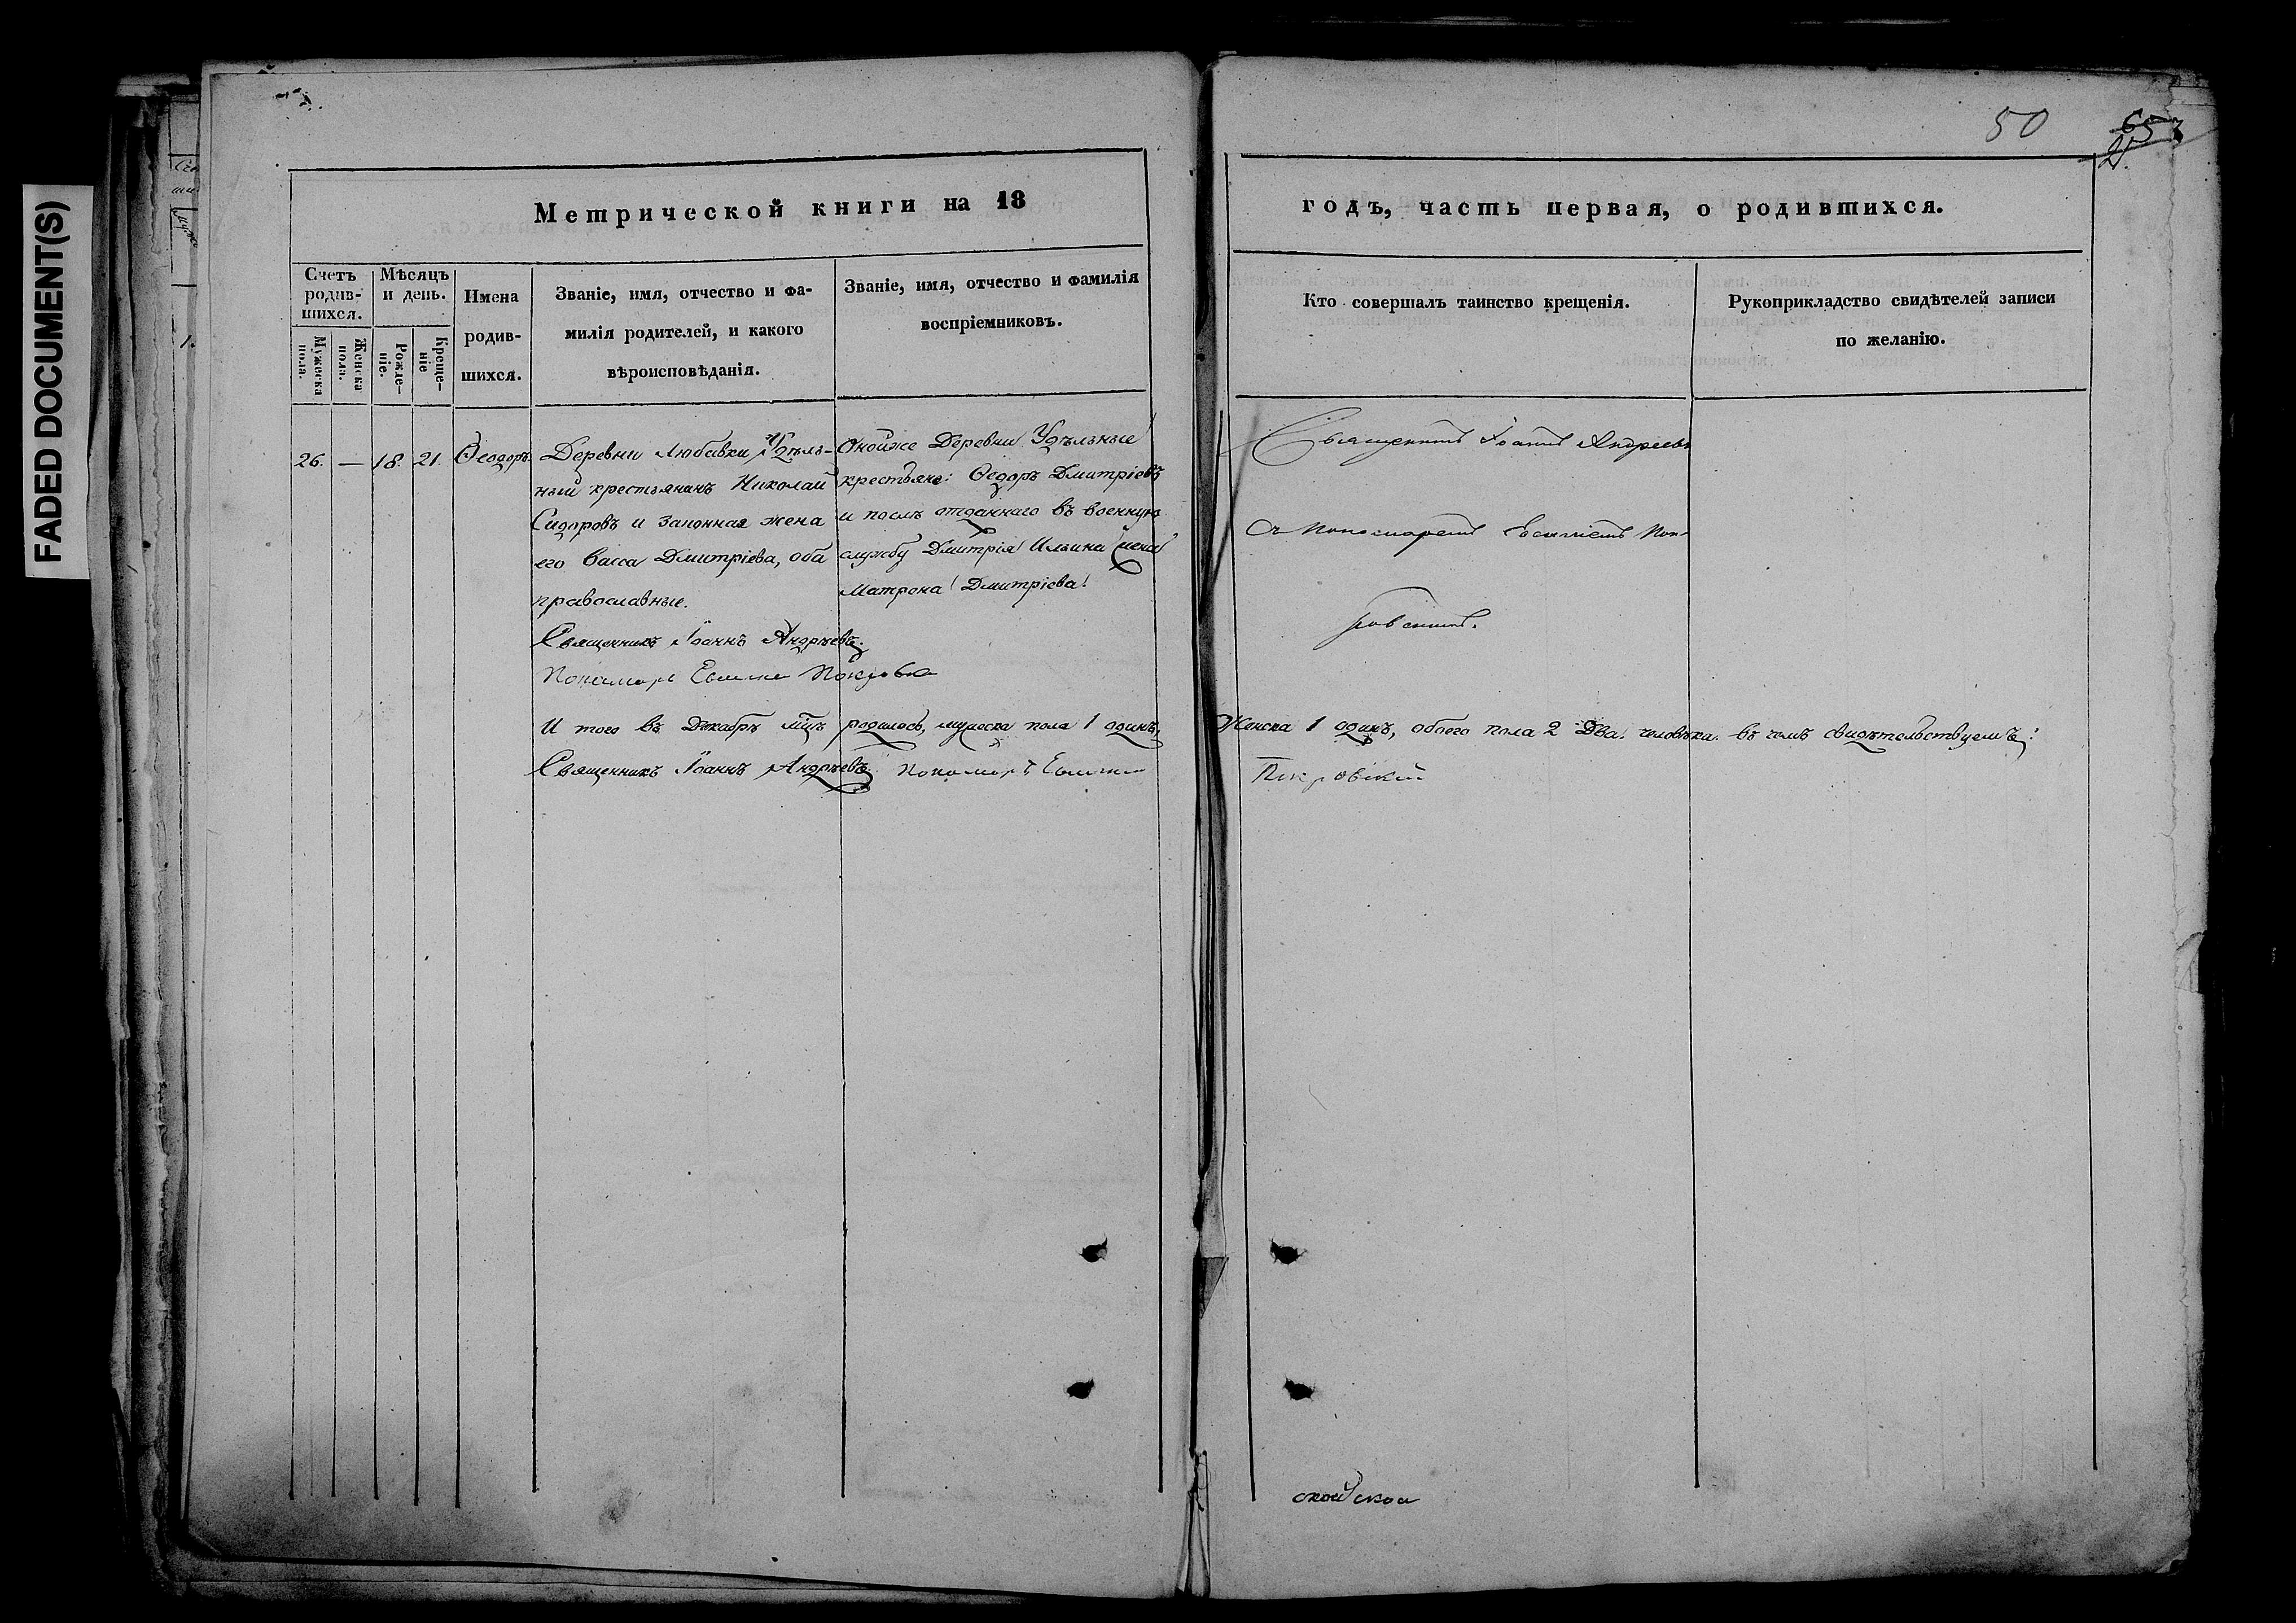 FADED DOCUMENT(S)
50
Метрической книги на 18
годъ, часть первая, о родившихся.
Счетъ родив-шихся.
Мѣсяцъ и день.
Мужеска пола.
Женска пола.
Рожде-ніе.
Креще-ніе
Имена
родив-
шихся.
Званіе, имя, отчество и фа-
милія родителей, и какого
вѣроисповѣданія.
Званіе, имя, отчество и фамилія
воспріемниковъ.
Кто совершалъ таинство крещенія.
Рукоприкладство свидѣтелей записи
по желанію.
26. — 18. 21. Ѳеодоръ.
Деревни Любавки Удѣль-
ный крестьянинъ Николай
Сидоровъ и законная жена
его Васса Дмитріева, оба
православные.
Священникъ Іоаннъ Андреевъ.
Пономарь
Оной же Деревни Удѣльные
крестьяне: Ѳедоръ Дмитріевъ
и послѣ отданнаго въ военную
службу Дмитрія Ильина жена
Матрона Дмитріева!
Священникъ Іоаннъ Андреевъ
съ Пономаремъ
И того въ Декабрѣ мцѣ родилось, мужеска пола 1 одинъ,
Женска 1 одинъ, обоего пола 2 Два. человѣка. въ чемъ свидѣтельствуемъ:
Священникъ Іоаннъ Андреевъ. Пономарь
Покровскій
ской